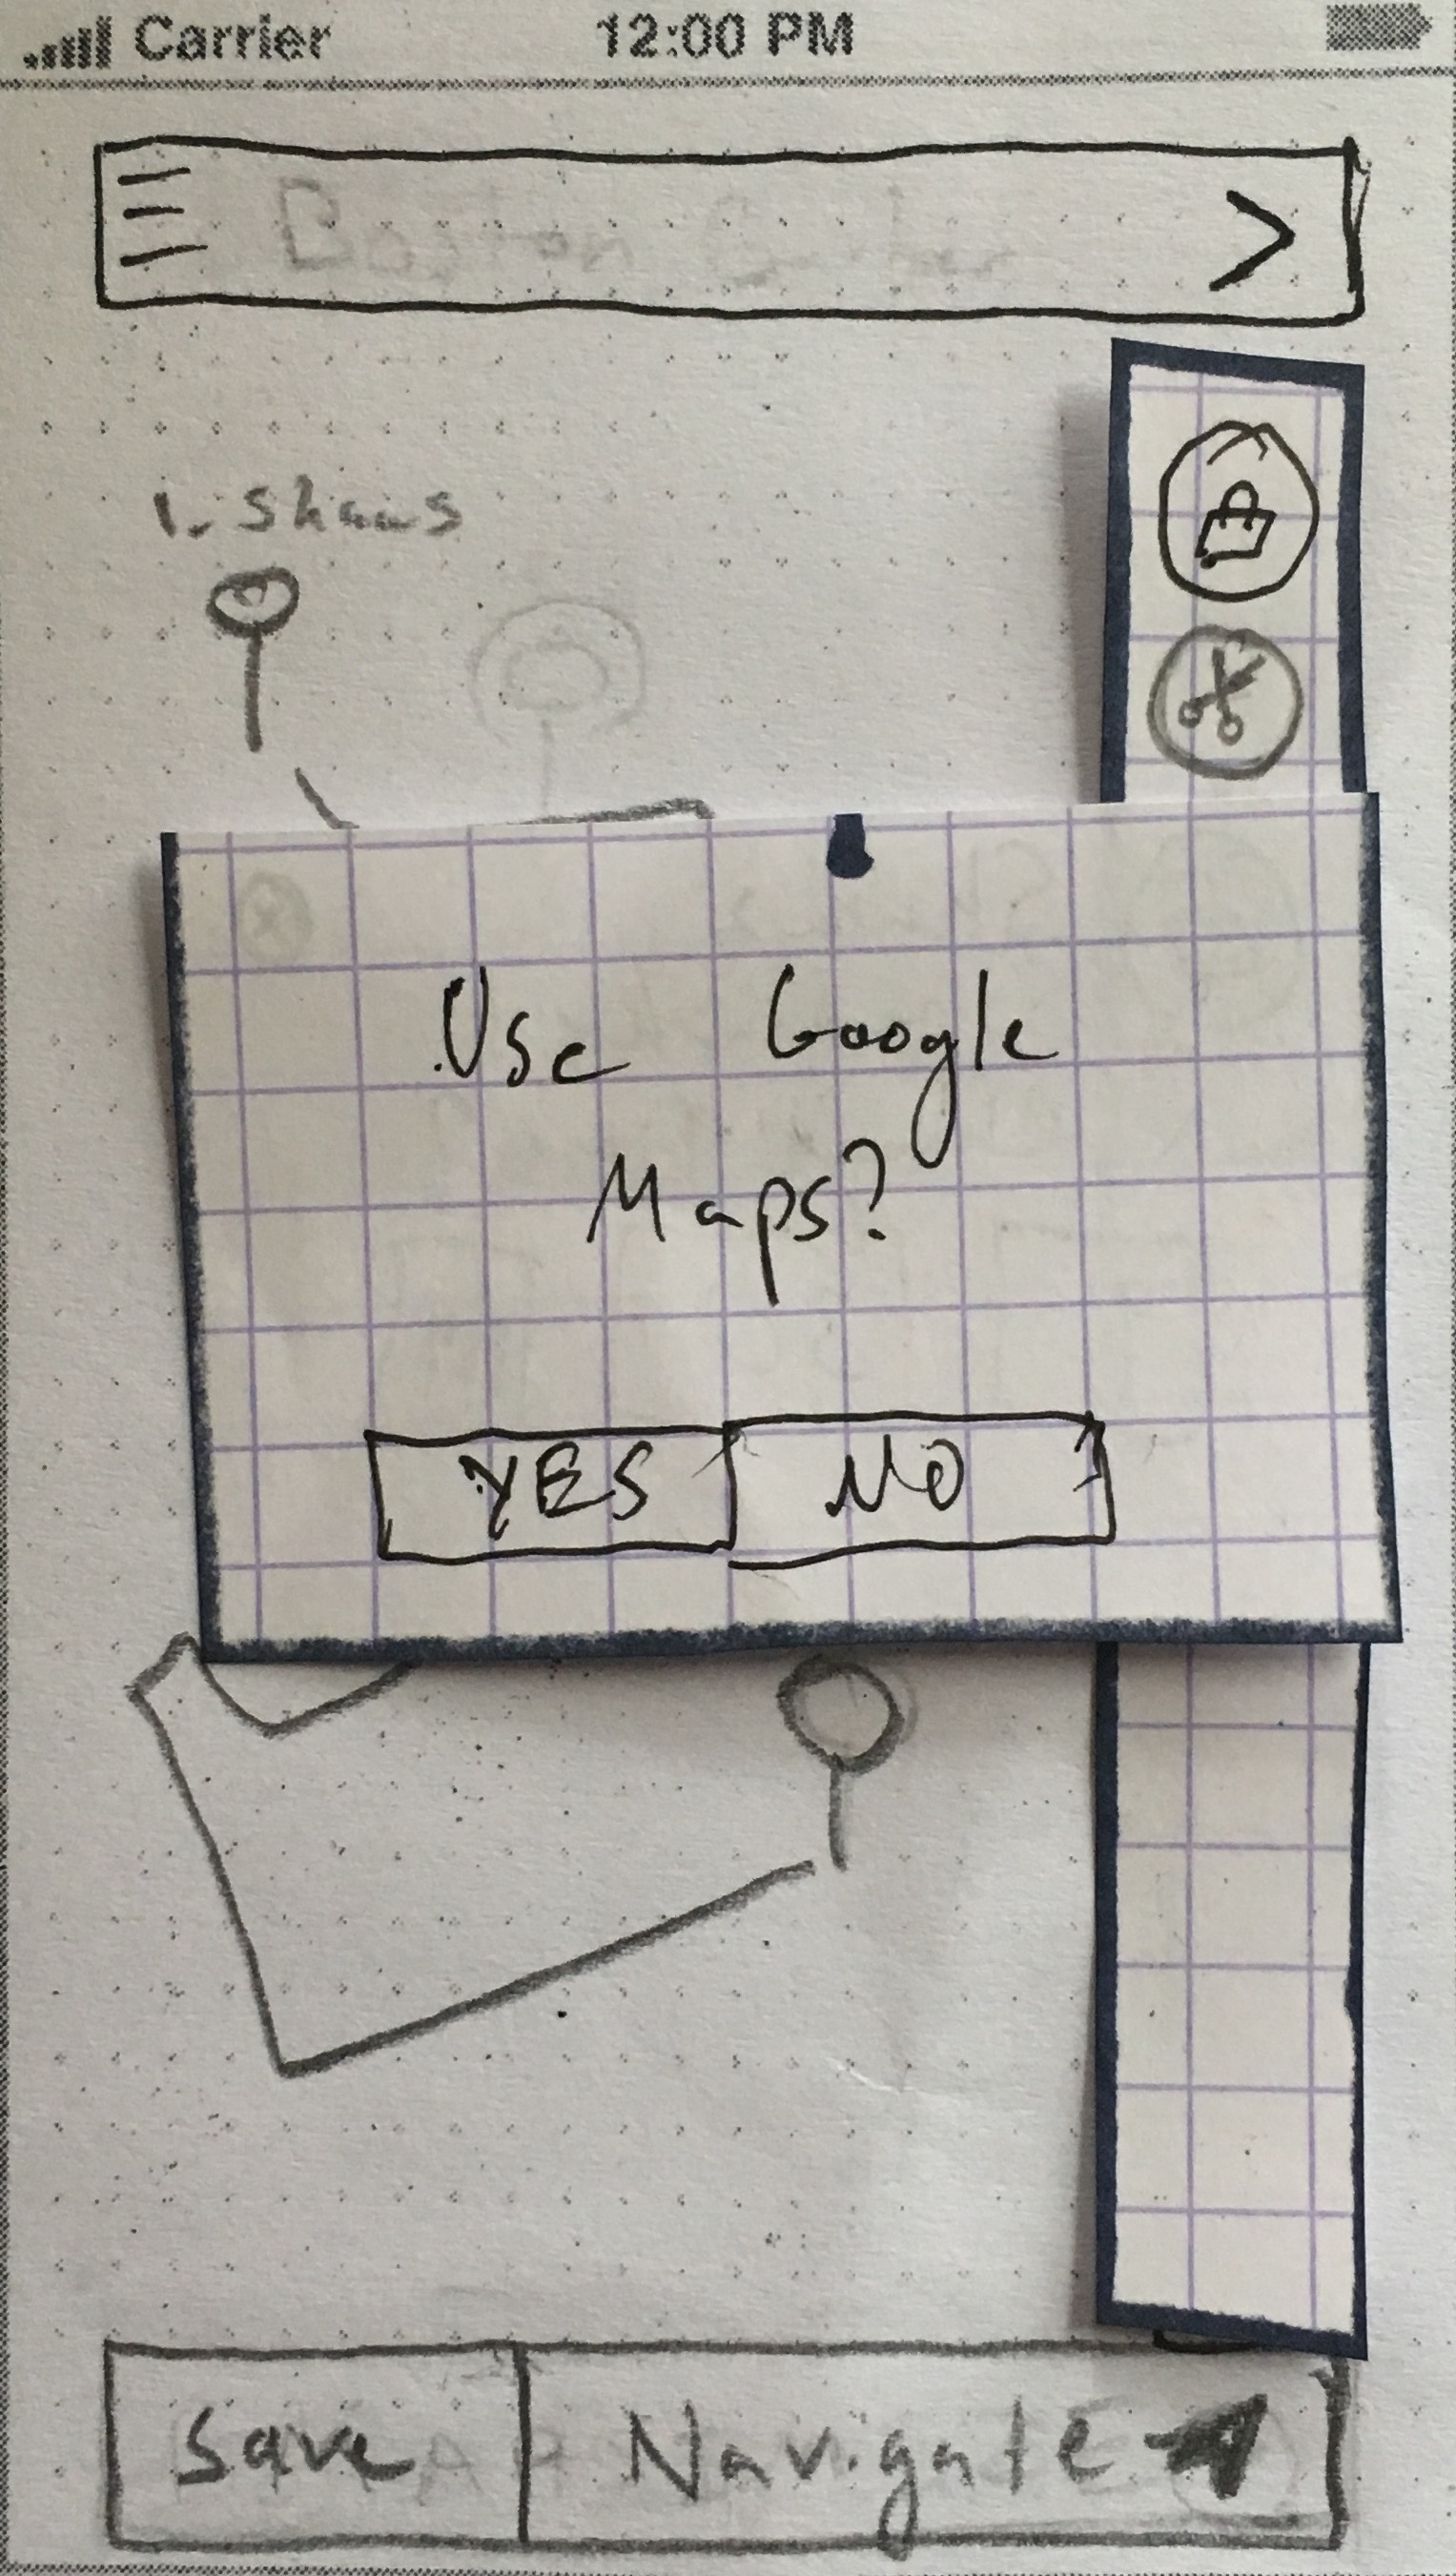 Carrier 12:00 PM
1. Shaws
Use Google
Maps?
YES NO
Save Navigate